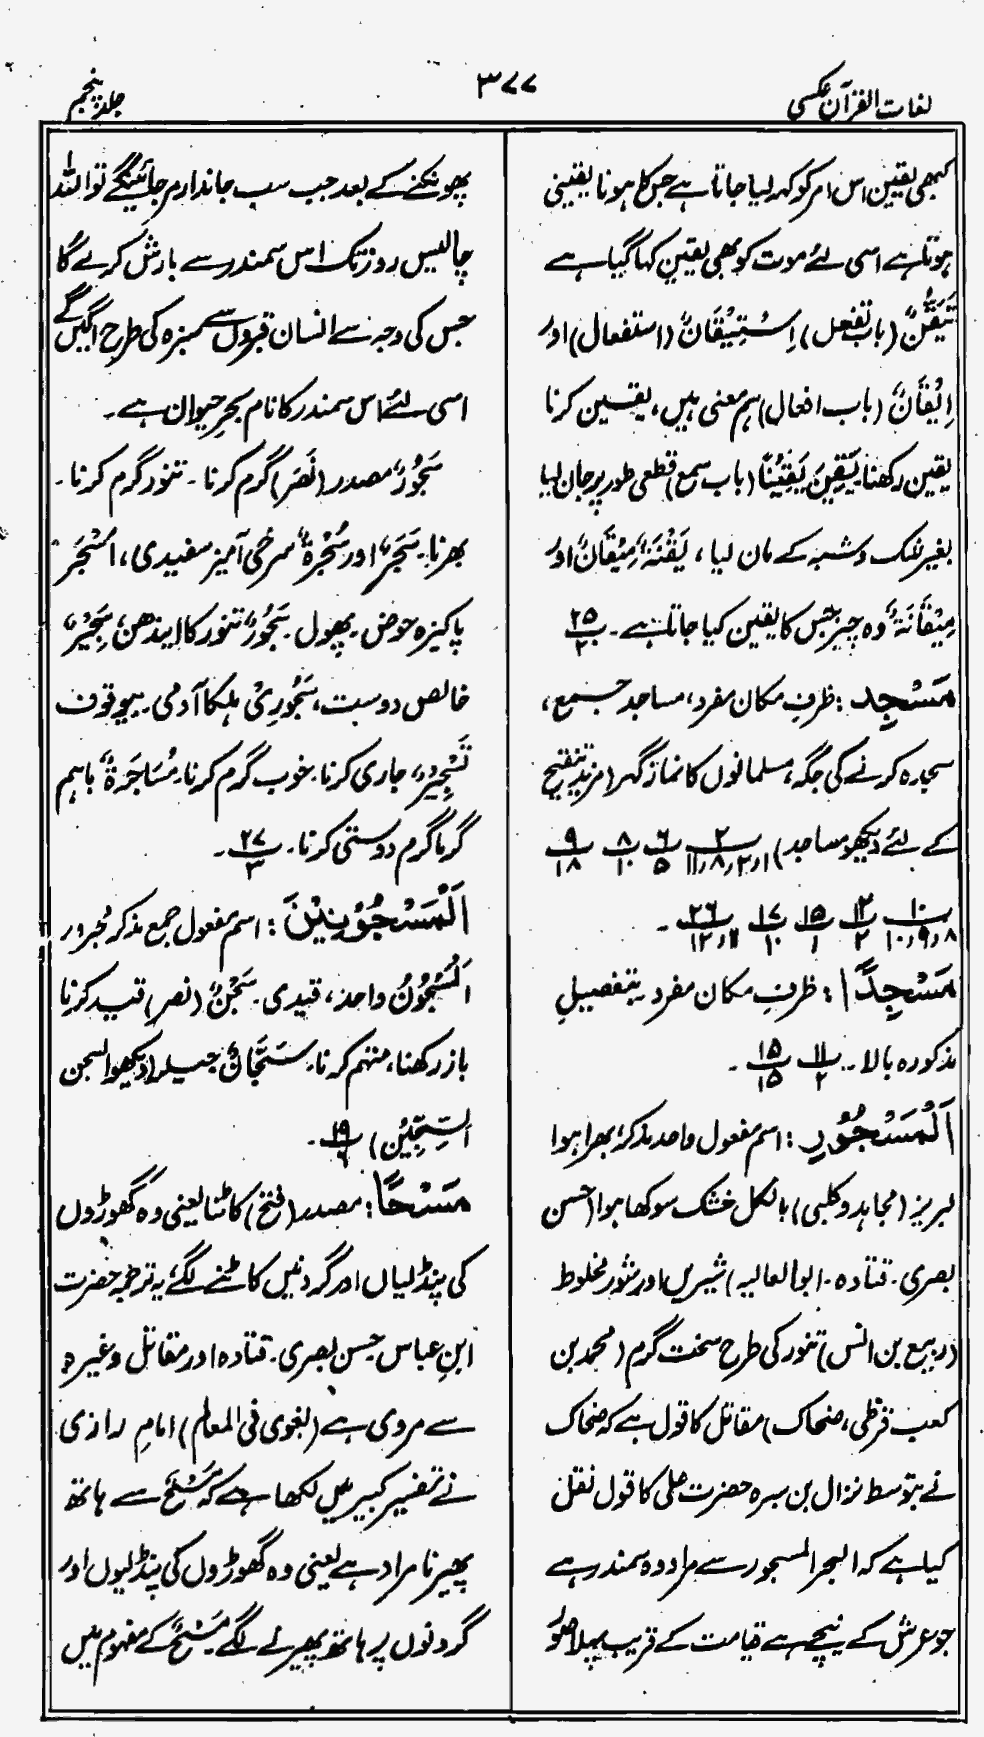 لغات القرآن عکسی
۳۷۷
جلد پنجم
کبھی یقین اس امر کو کہہ لیا جاتا ہے جس کا ہونا یقینی
ہوتا ہے اسی لئے موت کو بھی یقین کہا گیا ہے
تَیَقُّنٌ (باب تفعل) اِسْتِیْقَانٌ (استفعال) اور
اِیْقَانٌ (باب افعال) ہم معنی ہیں، یقین کرنا
یقین رکھنا یَقِنَ یَقِیْنًا (باب سمع) قطعی طور پر جان لیا
بغیر شک و شبہ کے مان لیا، یَقَنَۃٌ مِیْقَانٌ اور
مِیْقَانَۃٌ وہ چیز جس کا یقین کیا جاتا ہے۔ ۲۵/۲
مَسْجِد: ظرف مکان مفرد، مساجد جمع،
سجدہ کرنے کی جگہ، مسلمانوں کا نماز گھر (مزید تنقیح
کے لئے دیکھو مساجد) ۲/۱، ۲، ۸، ۱۱ ۶/۵ ۸/۱۰ ۹/۱۸
۱۰/۸، ۹، ۱۰ ۱۲/۲ ۱۵/۱ ۱۷/۱۰ ۲۶/۱۱، ۱۲ ۔
مَسْجِدًا: ظرف مکان مفرد بتفصیلِ
مذکورہ بالا۔ ۱۱/۲ ۱۵/۱۵ ۔
اَلْمَسْجُوْرِ: اسم مفعول واحد مذکر، بھرا ہوا
لبریز (مجاہد و کلبی) بالکل خشک سوکھا ہوا (حسن
بصری۔ قتادہ۔ ابو العالیہ) شیریں اور شور مخلوط
(ربیع بن انس) تنور کی طرح سخت گرم (محمد بن
کعب قرظی، ضحاک) مقاتل کا قول ہے کہ ضحاک
نے بتوسط نزال بن سبرہ حضرت علی کا قول نقل
کیا ہے کہ البحر المسجور سے مراد وہ سمندر ہے
جو عرش کے نیچے ہے قیامت کے قریب پہلا صُور
پھونکنے کے بعد جب سب جاندار مر جائینگے تو اللہ
چالیس روز تک اس سمندر سے بارش کرے گا
جس کی وجہ سے انسان قبروں سے سبزہ کی طرح اگیں گے
اسی لئے اس سمندر کا نام بحرِ حیوان ہے۔
سَجُوْرٌ مصدر (نَصَرَ) گرم کرنا۔ تنور گرم کرنا۔
بھرنا۔ سَجَرٌ اور سُجْرَۃٌ سرخی آمیز سفیدی، اَسْجَرَ
پاکیزہ حوض۔ پھول۔ سَجُوْرٌ تنور کا ایندھن، سَجِیْرٌ
خالص دوست، سَجُوْرِیْ ہلکا آدمی۔ بیوقوف
تَسْجِیْرٌ، جاری کرنا۔ خوب گرم کرنا۔ مُسَاجَرَۃٌ باہم
گرما گرم دوستی کرنا۔ ۲۷/۳ ۔
اَلْمَسْجُوْنِیْنَ: اسم مفعول جمع مذکر مجرور
اَلْمَسْجُوْنُ واحد، قیدی۔ سَجْنٌ (نصر) قید کرنا
باز رکھنا، متہم کرنا۔ سَجَّانٌ جیلر (دیکھو السجن
السِّجِّیْن) ۱۹/۶ ۔
مَسْحًا: مصدر (فتح) کاٹنا یعنی وہ گھوڑوں
کی پنڈلیاں اور گردنیں کاٹنے لگے یہ ترجمہ حضرت
ابنِ عباس حسن بصری۔ قتادہ اور مقاتل وغیرہ
سے مروی ہے (بغوی فی المعالم) امام رازی
نے تفسیر کبیر میں لکھا ہے کہ مَسْحٌ سے ہاتھ
پھیرنا مراد ہے یعنی وہ گھوڑوں کی پنڈلیوں اور
گردنوں پر ہاتھ پھیرنے لگے۔ مَسْحٌ کے مفہوم میں